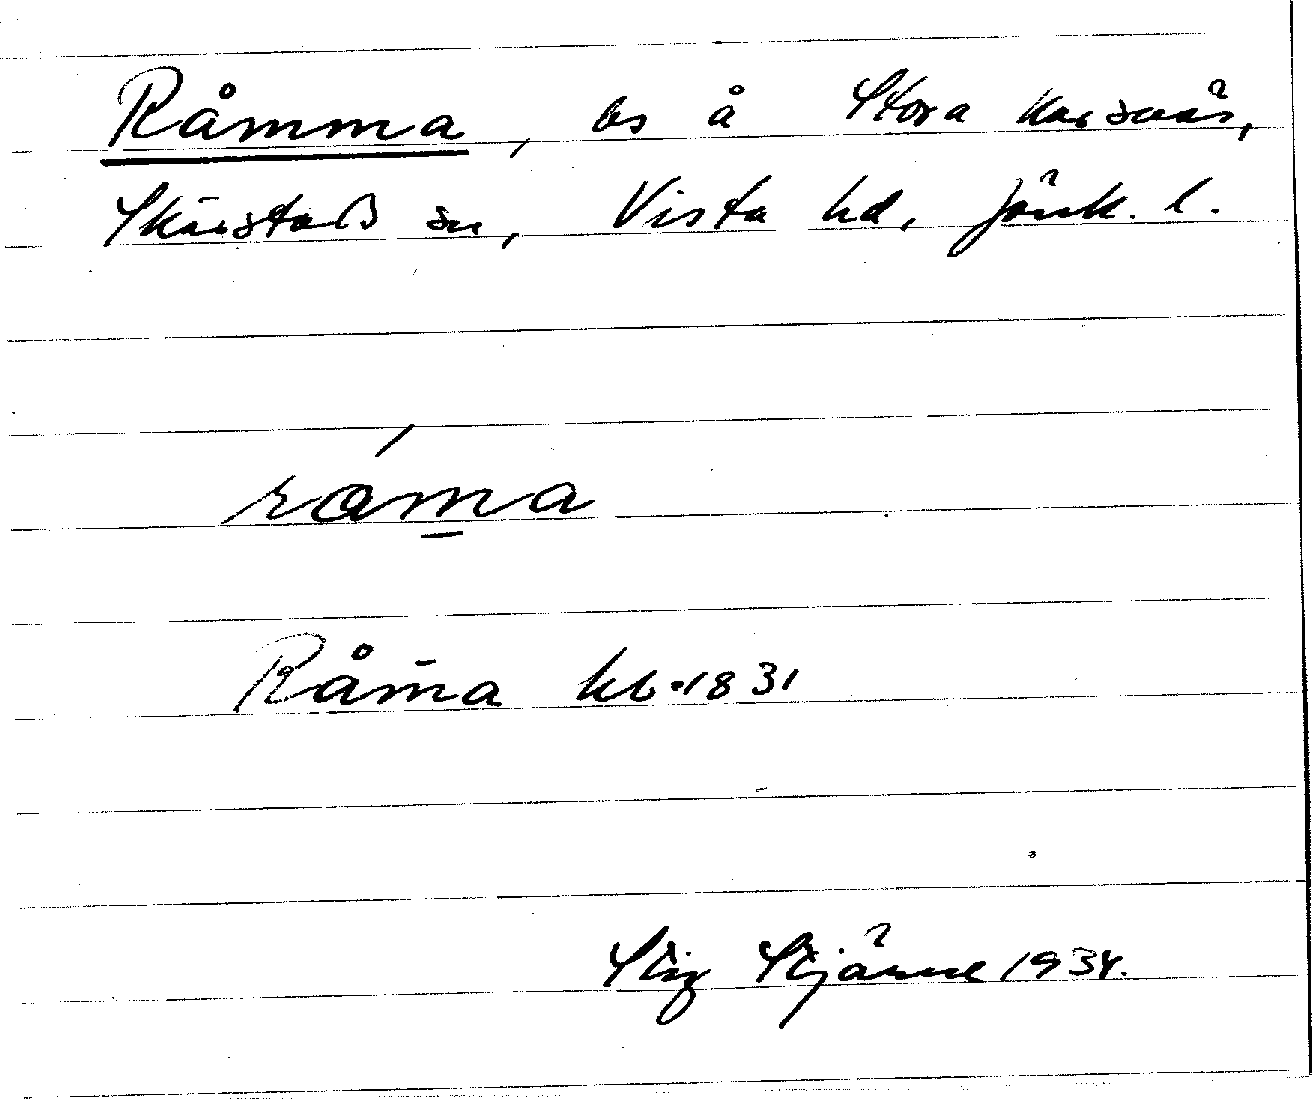 Råmma, bs å Stora Karsnäs,
Skärstads sn, Vista hd, Jönk. l.
råma
Råm̄a hb. 1831
Stig Stjärne 1934.